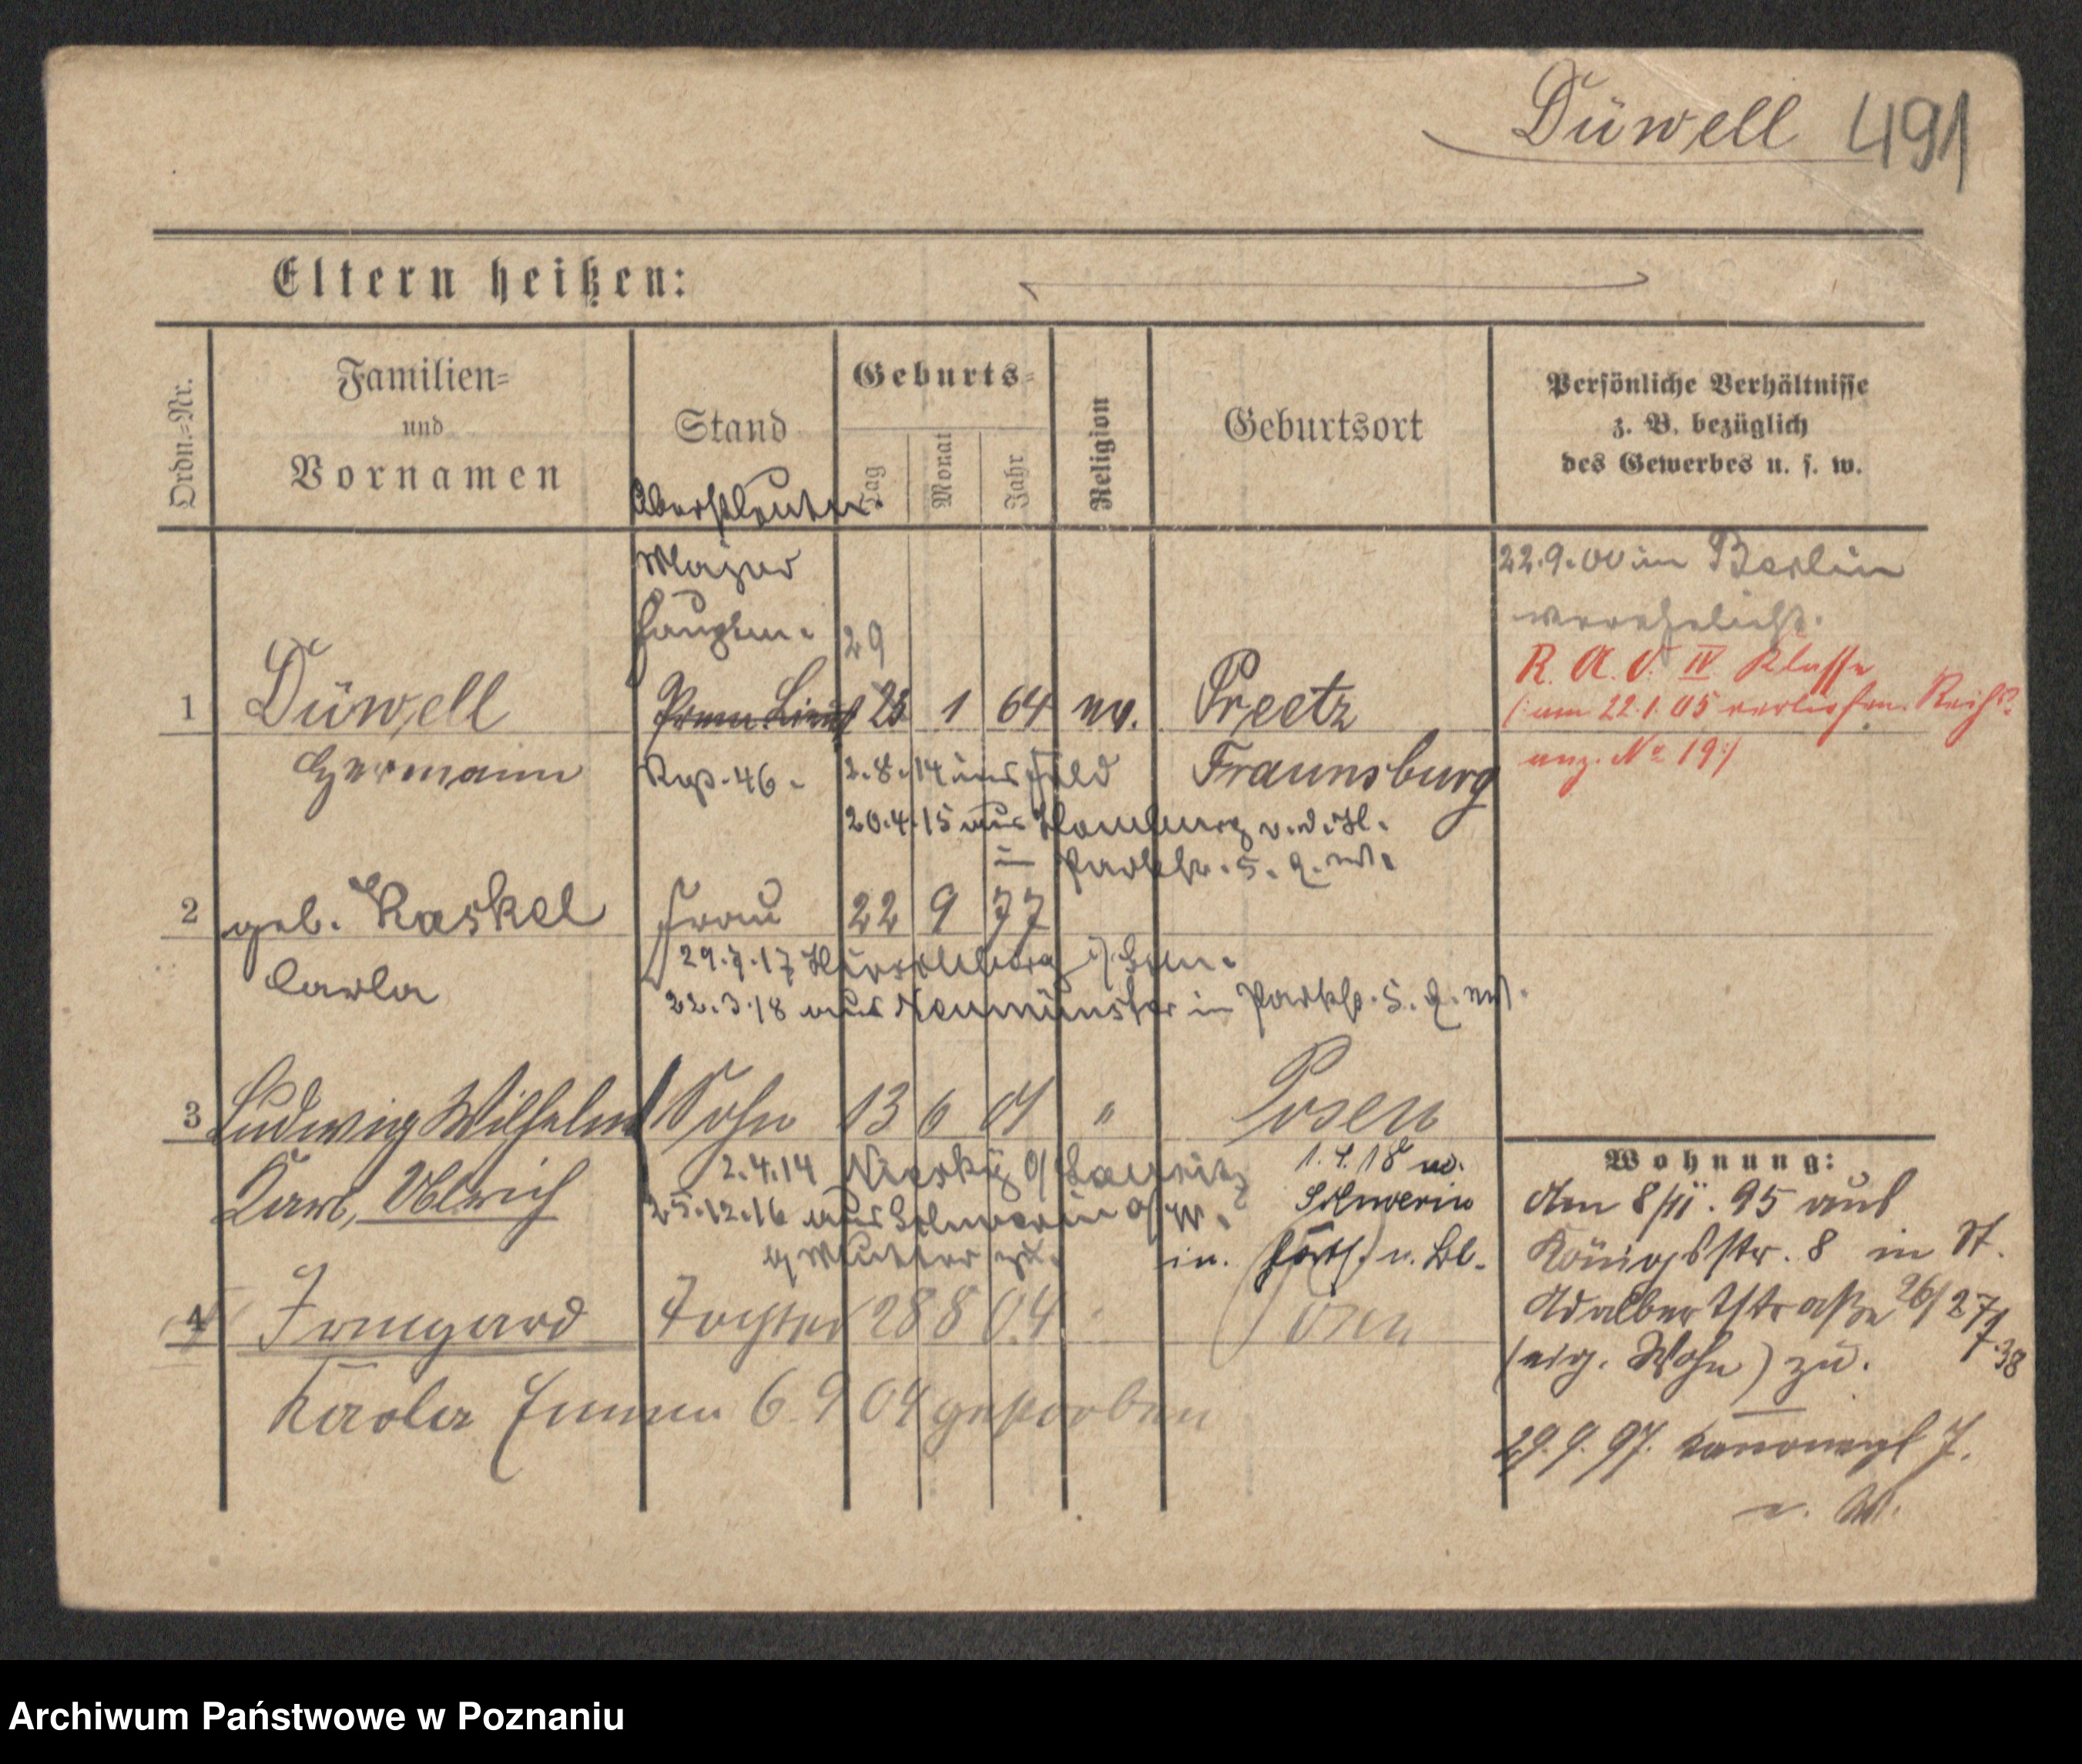 Düwell 491
Eltern heißen:
Ordn.=Nr.
Familien=
und
Vornamen
Stand
Geburts=
Tag
Monat
Jahr
Religion
Geburtsort
Persönliche Verhältnisse
z. B. bezüglich
des Gewerbes u. s. w.
Oberstleutn.
Major
Hauptm.
29
22.9.00 in Berlin
verehelicht.
R. A. O. IV Klasse
(: am 22.1.05 verliehen Reichs
anz. No 19 :)
1 Düwell Prem. Lieut 23 1 64 ev. Preetz
Hermann Rgt. 46. 2.8.14 ins Feld Fraunsburg
20.4.15 aus Homburg v.d.H.
in Parkstr. 5.
2 geb. Kaskel Frau 22 9 77
Carla
29.7.17
22.3.18 aus Neumünster in Parkstr. 5.
3 Ludwig Wilhelm Sohn 13 6 01 " Posen
Karl, Ulrich
2.4.14 Niesky O/Lausitz
25.12.16 aus Schwerin a/W.
z. Mutter zu.
1.4.18 w.
Schwerin
4 Irmgard Tochter 28 8 04 Posen
Karola Emma 6.9 04 gestorben
Wohnung:
Am 8/11. 95 aus
Königsstr. 8 in St.
Adalbertstraße 26/27
(eig. Wohn) zu.
29.9.97. Kanonenpl 7.
v. W.
Archiwum Państwowe w Poznaniu